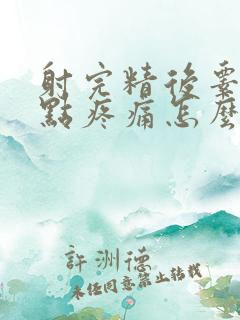 射完精後睾
點疼痛怎麼
許洲德
未经同意禁止转载